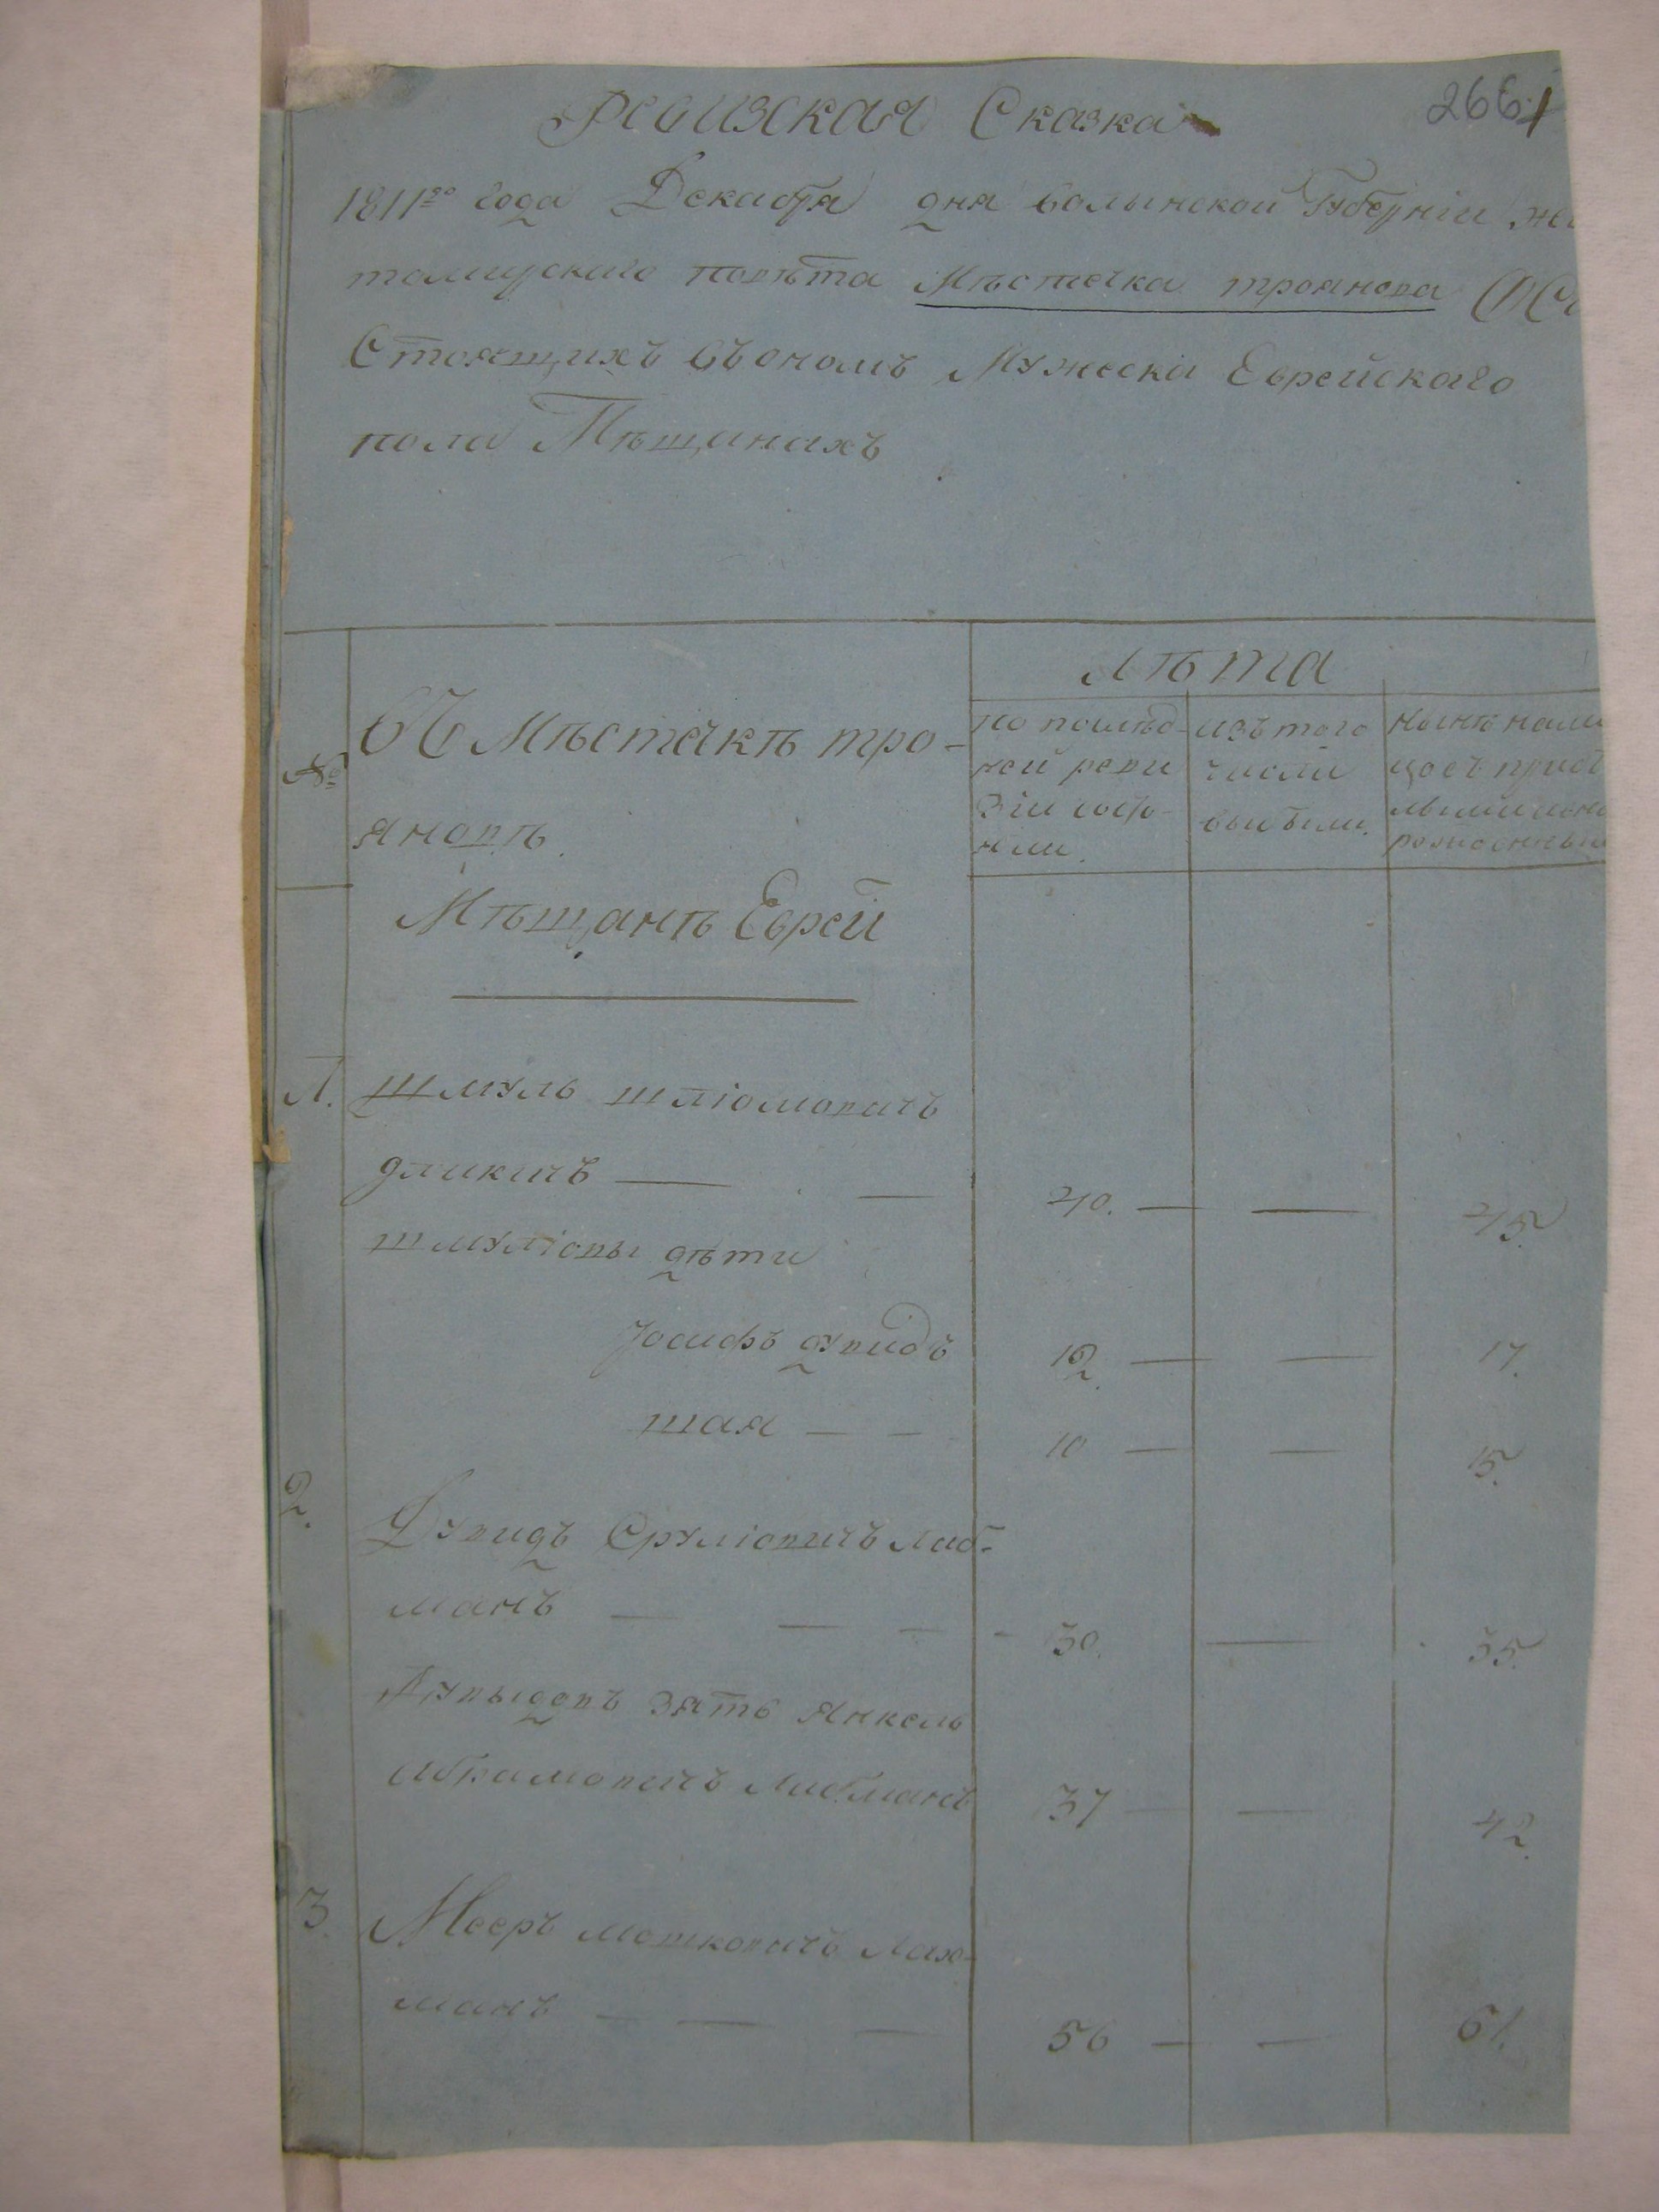 Ревизская Сказка
266
1811го года Декабря дня волынской Губерніи жи
томирскаго повѣта Мѣстечка троянова О Со
Стоящихъ въ ономъ Мужеска Еврейскаго
пола Мѣщанахъ
№
ВЪ Мѣстечкѣ тро-
яновѣ.
Мѣщанѣ Еврей
Лѣта
по послѣд-
ней реви
зіи состо-
яли.
изъ того
числа
выбыли.
Нынѣ нали
цо съ прибы
лыми и вно
рожденными
1. шмуль шліомовичъ
дликичъ — — 40. — — 45.
шмуліовы дѣти
Іосифъ дувидъ 12. — — 17.
шая — — 10 — — 15.
2. Дувидъ Сруліовичъ Либ-
манъ — — — 30. — 35.
Дувыдовъ зять Янкель
Абрамовичъ Либманъ 37 — — 42.
3. Мееръ мошковичъ Лах-
манъ — — — 56 — — 61.